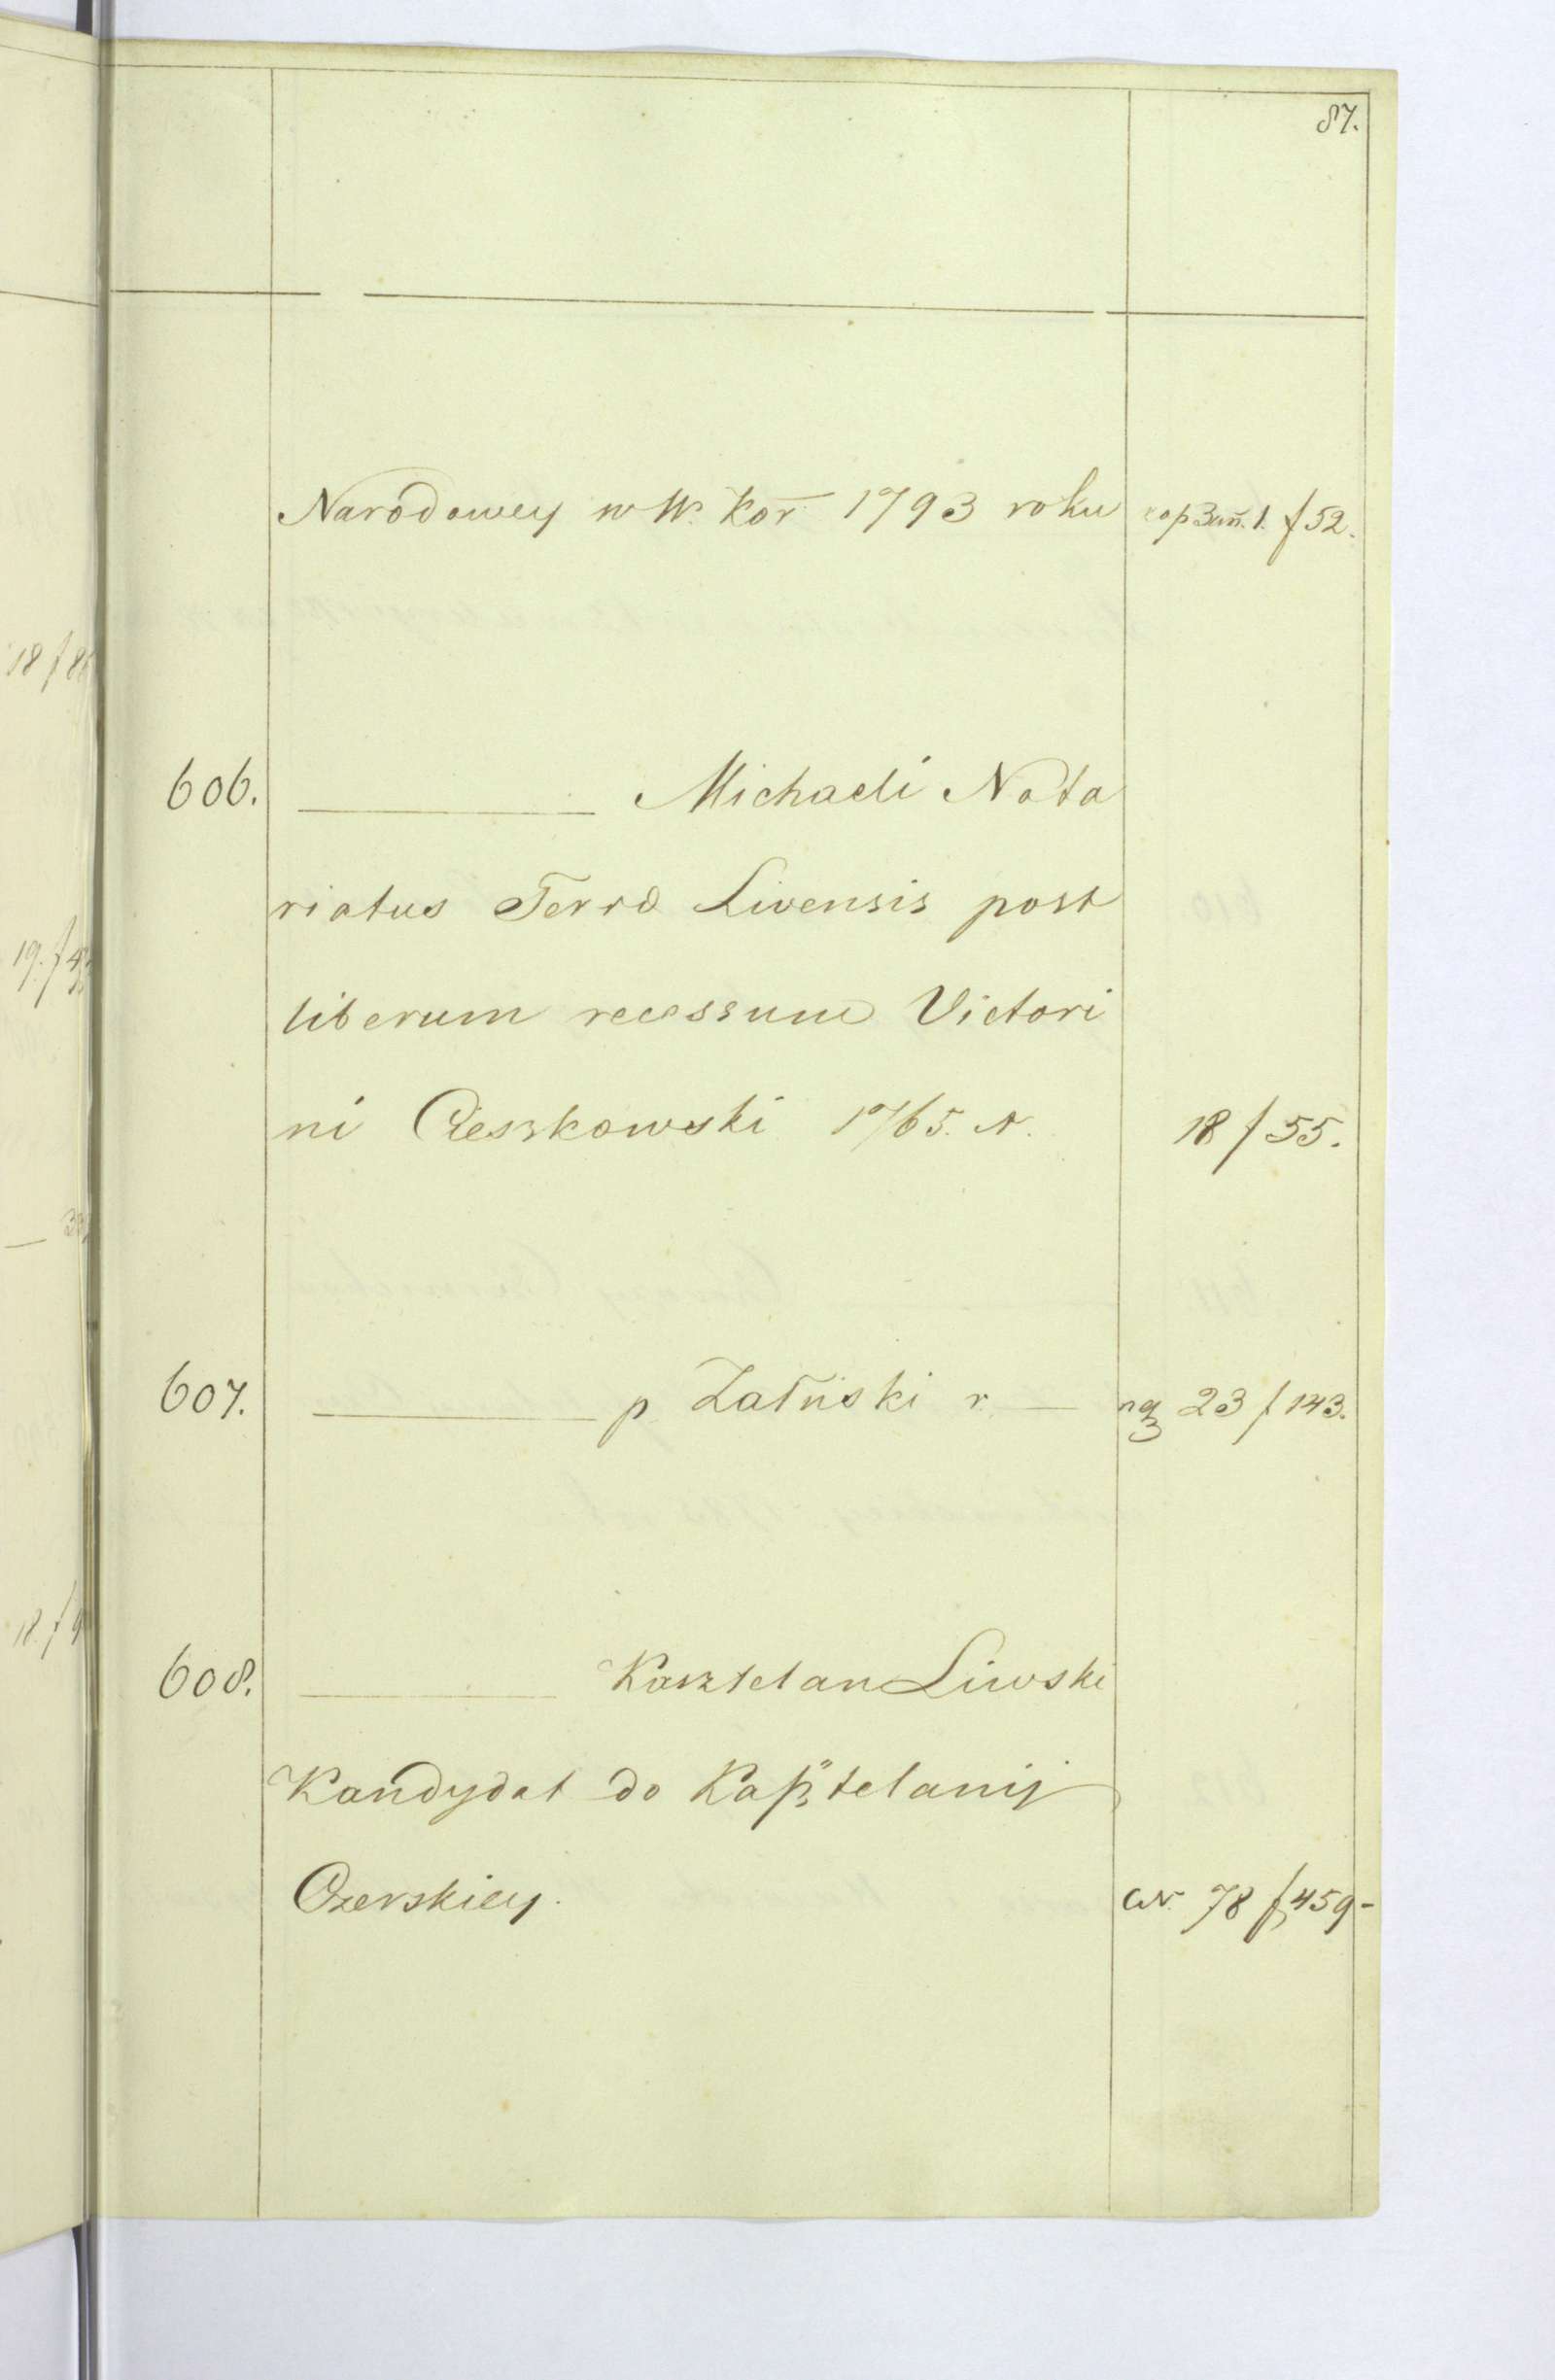 87.
Narodowey w W. Kor 1793 roku f 52.
606. Michaeli Nota
riatus Terrae Livensis post
liberum recessum Victori
ni Cieszkowski 1765. A. 18 f 55.
607. p Załuski r 23 f 143.
608. Kasztelan Liwski
Kandydat do Kasztelanij
Czerskiey. 78 f 459